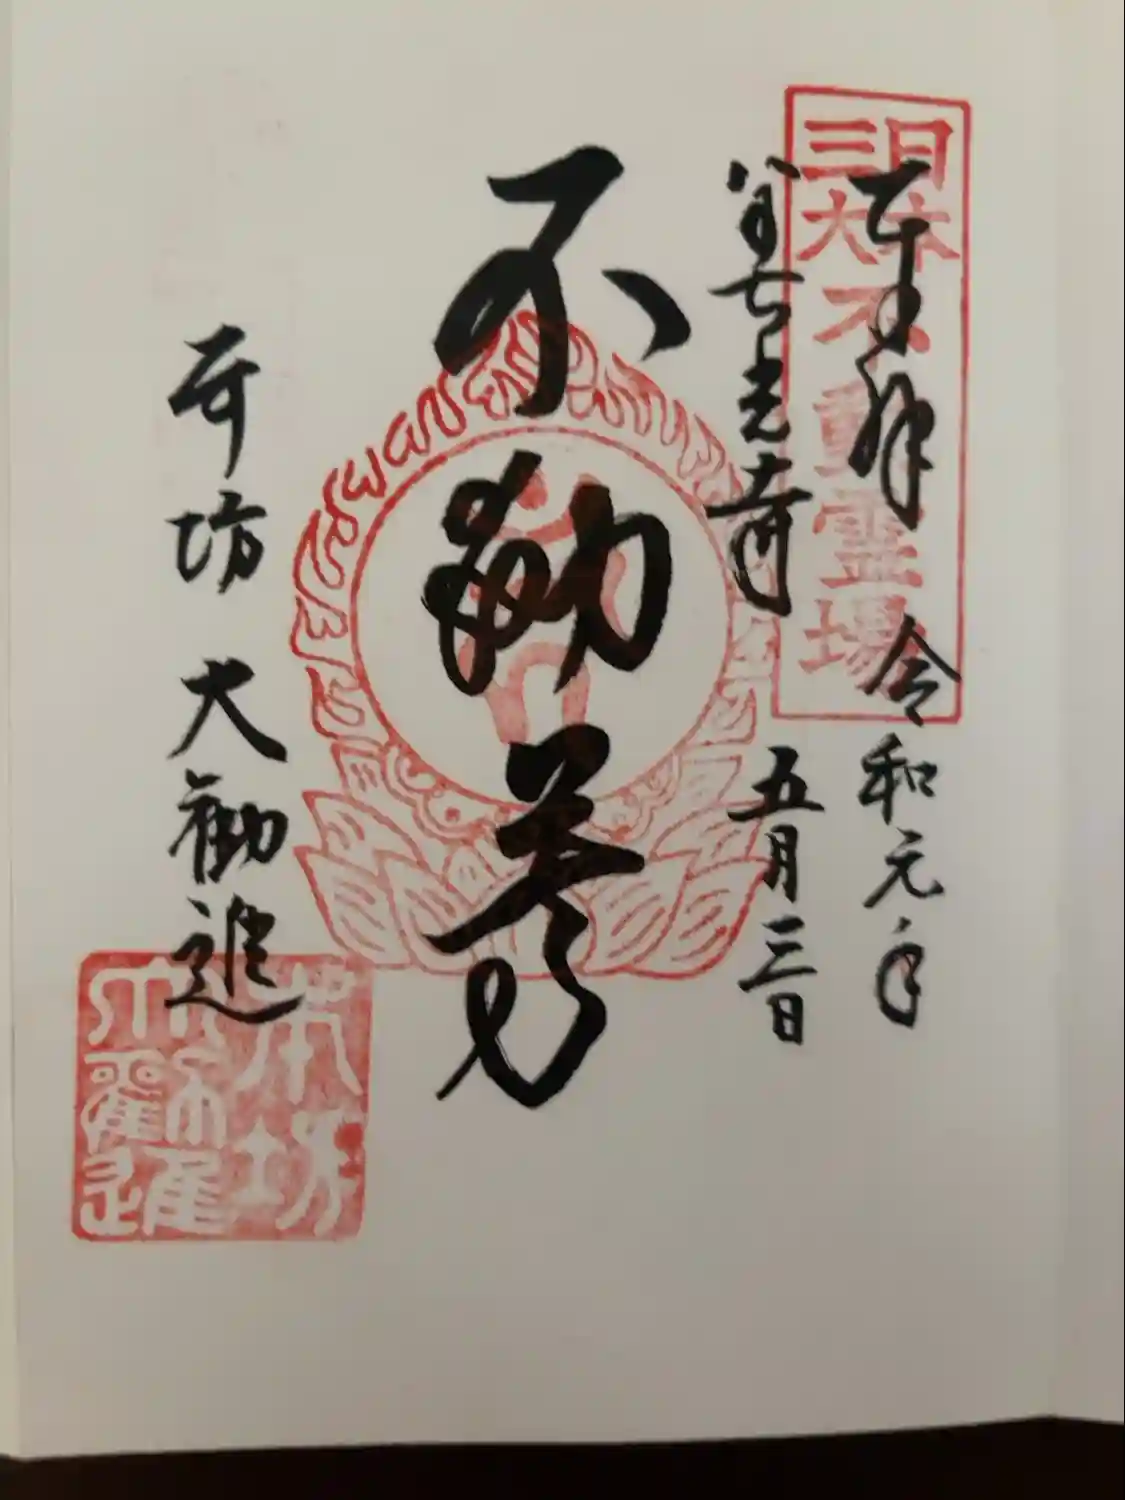 奉拝 令和元年
日本
三大
不動霊場
善光寺 五月三日
不動尊
本坊 大勧進
本坊
大勧進